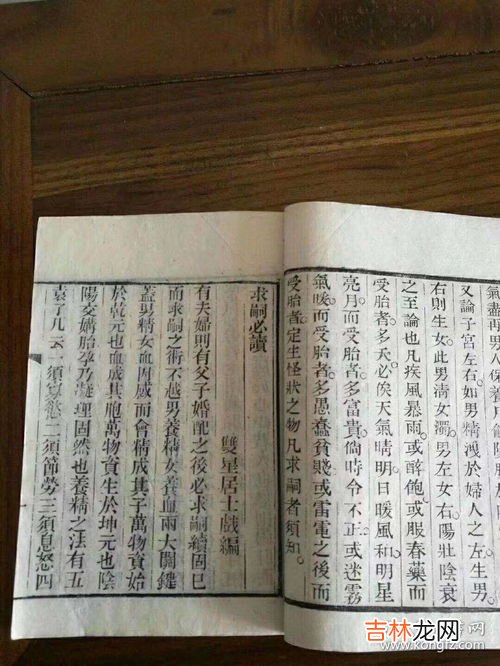 氣盡再男人保養
又論子宮左右如男精洩於婦人之左生男。
右則生女此男清女濁。男左女右陽壯陰衰
之至論也凡疾風暴雨或醉飽或服春藥而
受胎者多夭必俟天氣晴明日暖風和明星
亮月而受胎者多富貴倘時令不正或迷霧
氣暖而受胎者多愚蠢貧賤或雷電之後而
受胎者定生怪狀之物凡求嗣者須知。
求嗣必讀
雙星居士戲編
有夫婦則有父子婚配之後必求嗣續固已
而求嗣之術不越男養精女養血兩大關鍵
蓋男精女血因感而會精成其子萬物資始
於乾元也血感其胞萬物資生於坤元也陰
陽交媾胎孕乃凝理固然也養精之法有五
袁了凡云一須寡慾二須節勞三須息怒四
吉林龙网